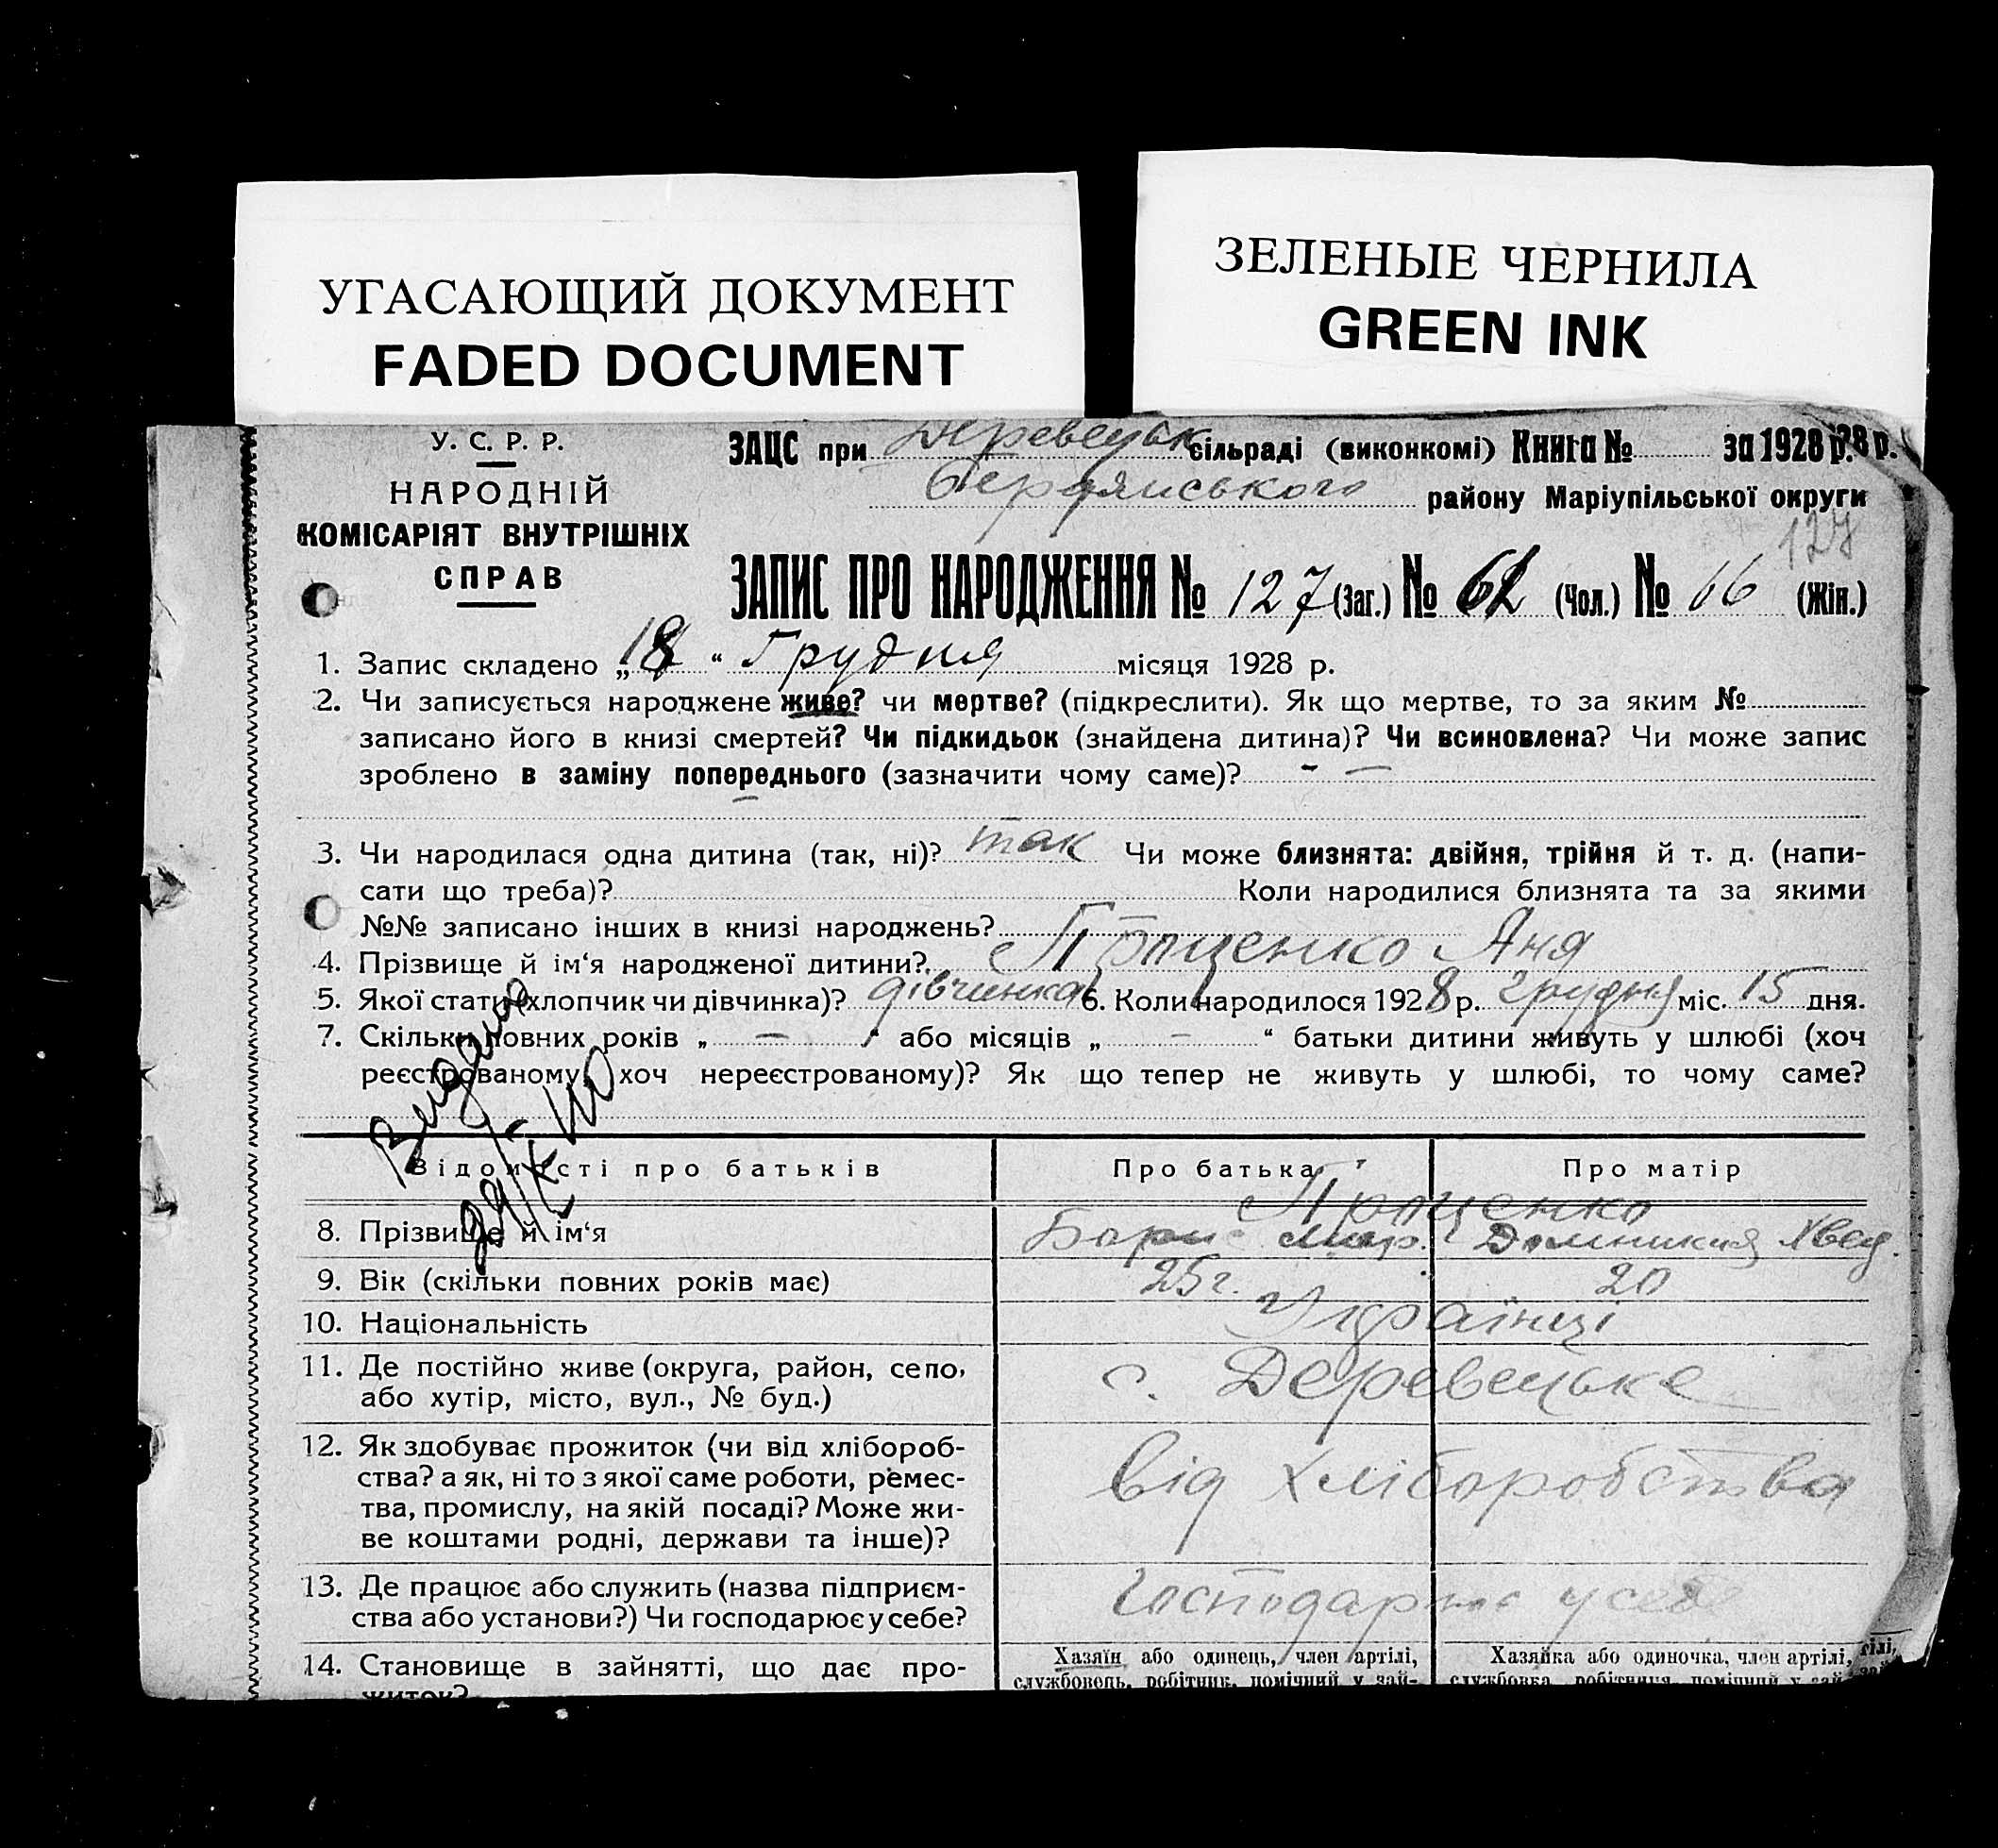 УГАСАЮЩИЙ ДОКУМЕНТ
FADED DOCUMENT
ЗЕЛЕНЫЕ ЧЕРНИЛА
GREEN INK
У. С. Р. Р.
НАРОДНІЙ
КОМІСАРІЯТ ВНУТРІШНІХ
СПРАВ
ЗАЦС при Деревецьк сільраді (виконкомі) Книга № за 1928 р.
Бердянського району Маріупільської округи
127
ЗАПИС ПРО НАРОДЖЕННЯ № 127 (Заг.) № 61 (Чол.) № 66 (Жін.)
1. Запис складено „18“ Грудня місяця 1928 р.
2. Чи записується народжене живе? чи мертве? (підкреслити). Як що мертве, то за яким №
записано його в книзі смертей? Чи підкидьок (знайдена дитина)? Чи всиновлена? Чи може запис
зроблено в заміну попереднього (зазначити чому саме)? - —
3. Чи народилася одна дитина (так, ні)? так Чи може близнята: двійня, трійня й т. д. (напи-
сати що треба)? Коли народилися близнята та за якими
№№ записано інших в книзі народжень?
4. Прізвище й ім‘я народженої дитини? Проценко Аня
5. Якої стати (хлопчик чи дівчинка)? дівчинка 6. Коли народилося 1928 р. Грудня міс. 15 дня.
7. Скільки повних років „ — “ або місяців „ — “ батьки дитини живуть у шлюбі (хоч
реєстрованому, хоч нереєстрованому)? Як що тепер не живуть у шлюбі, то чому саме?
Видано
Відомості про батьків Про батька Про матір
Проценко
8. Прізвище й ім‘я Борис Мар. Доминикия Хвед.
9. Вік (скільки повних років має) 25 г. 20
10. Національність Українці
11. Де постійно живе (округа, район, село,
або хутір, місто, вул., № буд.)
с. Деревецьке
12. Як здобуває прожиток (чи від хлібороб-
ства? а як, ні то з якої саме роботи, ремес-
тва, промислу, на якій посаді? Може жи-
ве коштами родні, держави та інше)?
від хліборобства
13. Де працює або служить (назва підприєм-
ства або установи?) Чи господарює у себе?
Господарює у себе
14. Становище в зайнятті, що дає про-
житок?
Хазяїн або одинець, член артілі,
службовець, робітник, помічний у зай-
Хазяйка або одиночка, член артілі,
службовка, робітниця, помічниця у зай-